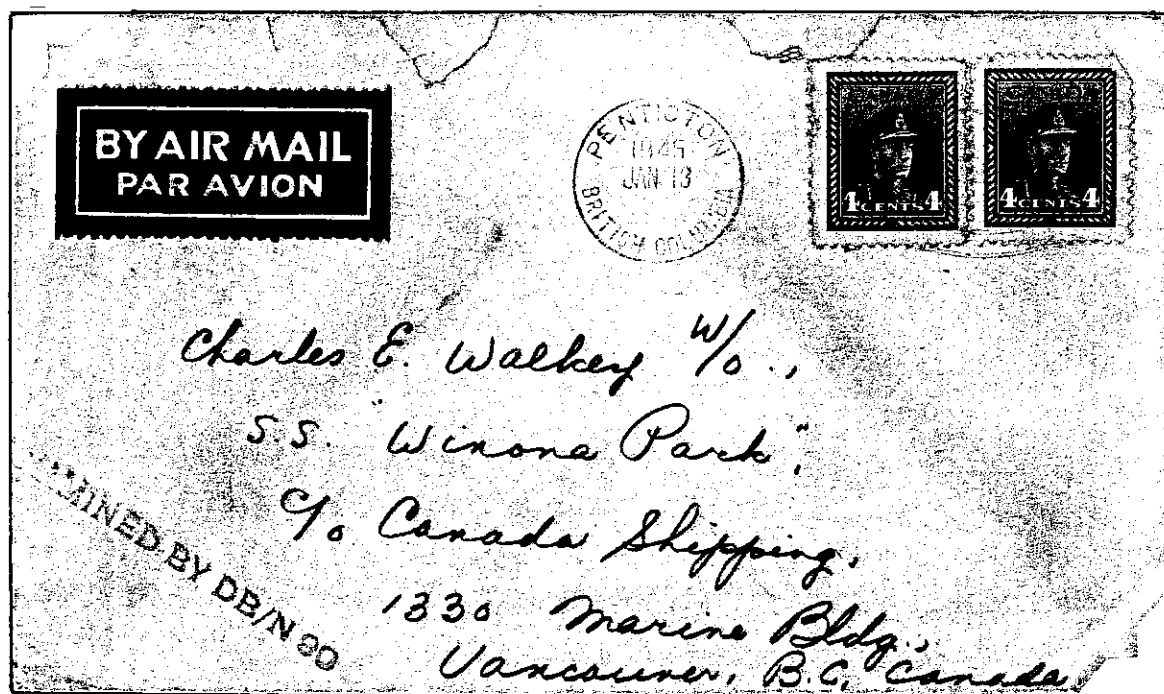 BY AIR MAIL
PAR AVION
PENTICTON
1945
JAN 13
BRITISH COLUMBIA
4 CENTS 4
4 CENTS 4
Charles E. Walkey W/o.,
S.S. "Winona Park",
c/o Canada Shipping,
1330 Marine Bldg.,
Vancouver, B.C. Canada
MINED BY DB/N 90